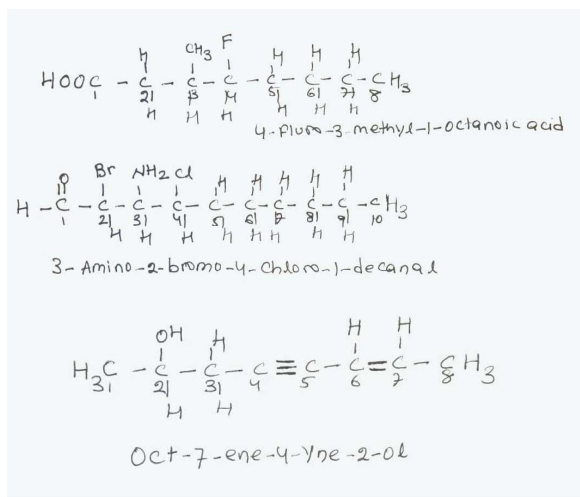 H CH3 F H H H
HOOC - C - C - C - C - C - C - CH3
1 2 3 4 5 6 7 8
H H H H H H
4-Fluro-3-methyl-1-octanoic acid
O Br NH2 Cl H H H H H
H - C - C - C - C - C - C - C - C - C - CH3
1 2 3 4 5 6 7 8 9 10
H H H H H H H H
3-Amino-2-bromo-4-Chloro-1-decanal
OH H H H
H3C - C - C - C ≡ C - C = C - CH3
1 2 3 4 5 6 7 8
H H
Oct-7-ene-4-Yne-2-ol